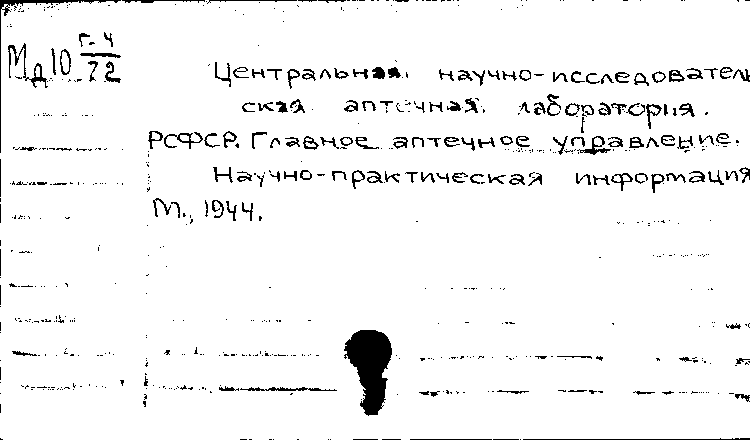 Мд 10 Г-4/72
Центральная научно-исследователь
ская аптечная лаборатория.
РСФСР. Главное аптечное управление.
Научно-практическая информация
М., 1944.